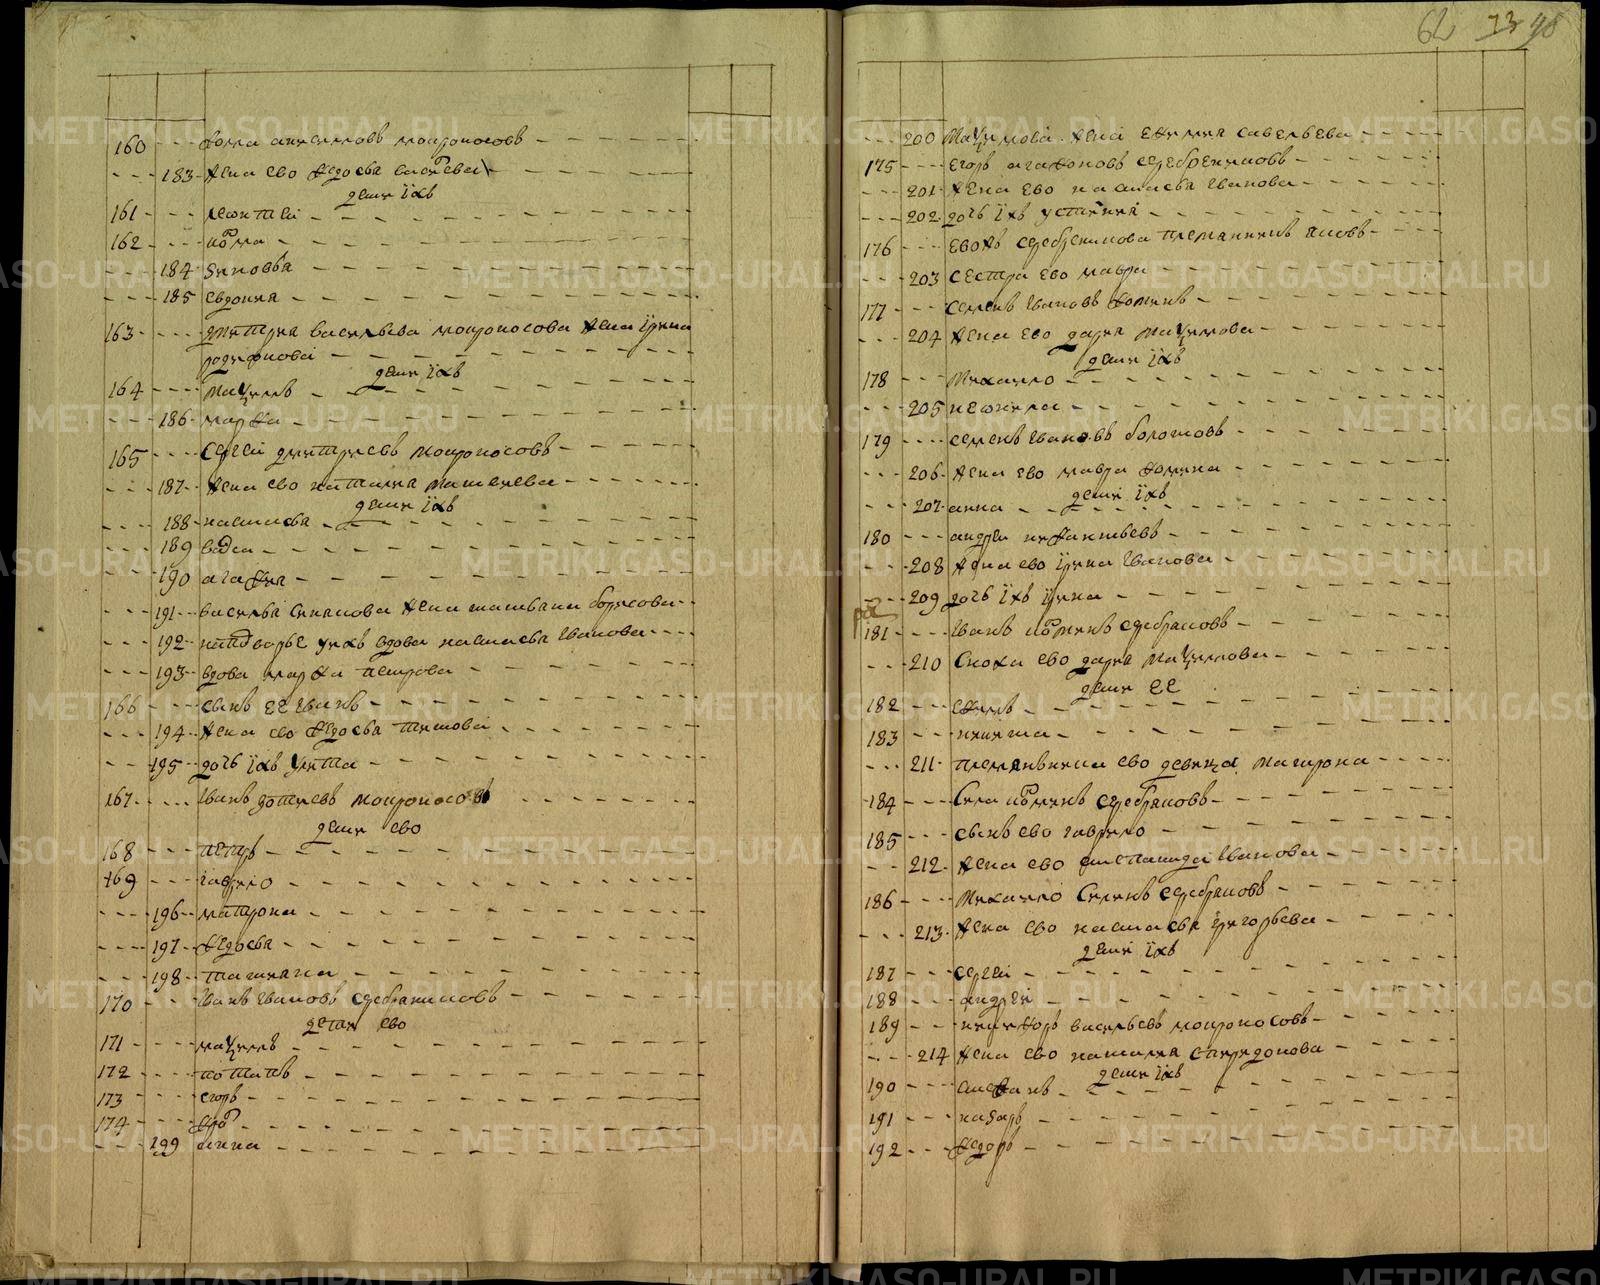 62 73 98
160 - - - Фома анисимовъ мокроносовъ
183 жена ево Федосья васильева
дети ихъ
161 - - - леонтеи
162 - - - козма
184 зиновья
185 евдокия
163 - - - дмитрия васильева мокроносова жена ирина
родионова
дети ихъ
164 - - - максимъ
186 марфа
165 - - - Сергеи дмитриевъ мокроносовъ
187 жена ево наталия матвеева
дети ихъ
188 настасья
189
190 агафия
191 василья жена татьяна борисова
192 надворье у нихъ вдова настасья Иванова
193 вдова марфа петрова
166 - - - сынъ ее Иванъ
194 жена ево Федосья титова
195 дочь ихъ улита
167 - - - Иванъ мокроносовъ
дети ево
168 - - - петръ
169 - - - гаврило
196 матрона
197 Федосья
198 татиана
170 - - - Иванъ Ивановъ
дети ево
171 - - - максимъ
172 - - - потапъ
173 - - - егоръ
174 - - -
199 анна
200 Максимова жена ефимия савельева
175 - - - Егоръ агафоновъ серебрениковъ
201 жена ево настасья Иванова
202 дочь ихъ устиния
176 - - - Евожъ серебреникова племянникъ яковъ
203 Сестра ево мавра
177 - - - Семенъ Ивановъ Фоминъ
204 жена ево дария максимова
дети ихъ
178 - - - Михаило
205 неонила
179 - - - Семенъ Ивановъ болотовъ
206 жена ево мавра Фомина
дети ихъ
207 анна
180 - - - андреи
208 жена ево ирина Иванова
209 дочь ихъ ирина
181 - - - Иванъ козминъ серебряковъ
210 Сноха ево дария максимова
дети ее
182 - - - ефимъ
183 - - - никита
211 племянница ево девица матрона
184 - - - Сила козминъ серебряковъ
185 - - - сынъ ево гаврило
212 жена ево степанида Иванова
186 - - - Михаило Силинъ серебряковъ
213 жена ево настасья григорьева
дети ихъ
187 - - - Сергеи
188 - - - андреи
189 - - - никифоръ васильевъ мокроносовъ
214 жена ево наталия спиридонова
дети ихъ
190 - - - стефанъ
191 - - - назаръ
192 - - - Федоръ